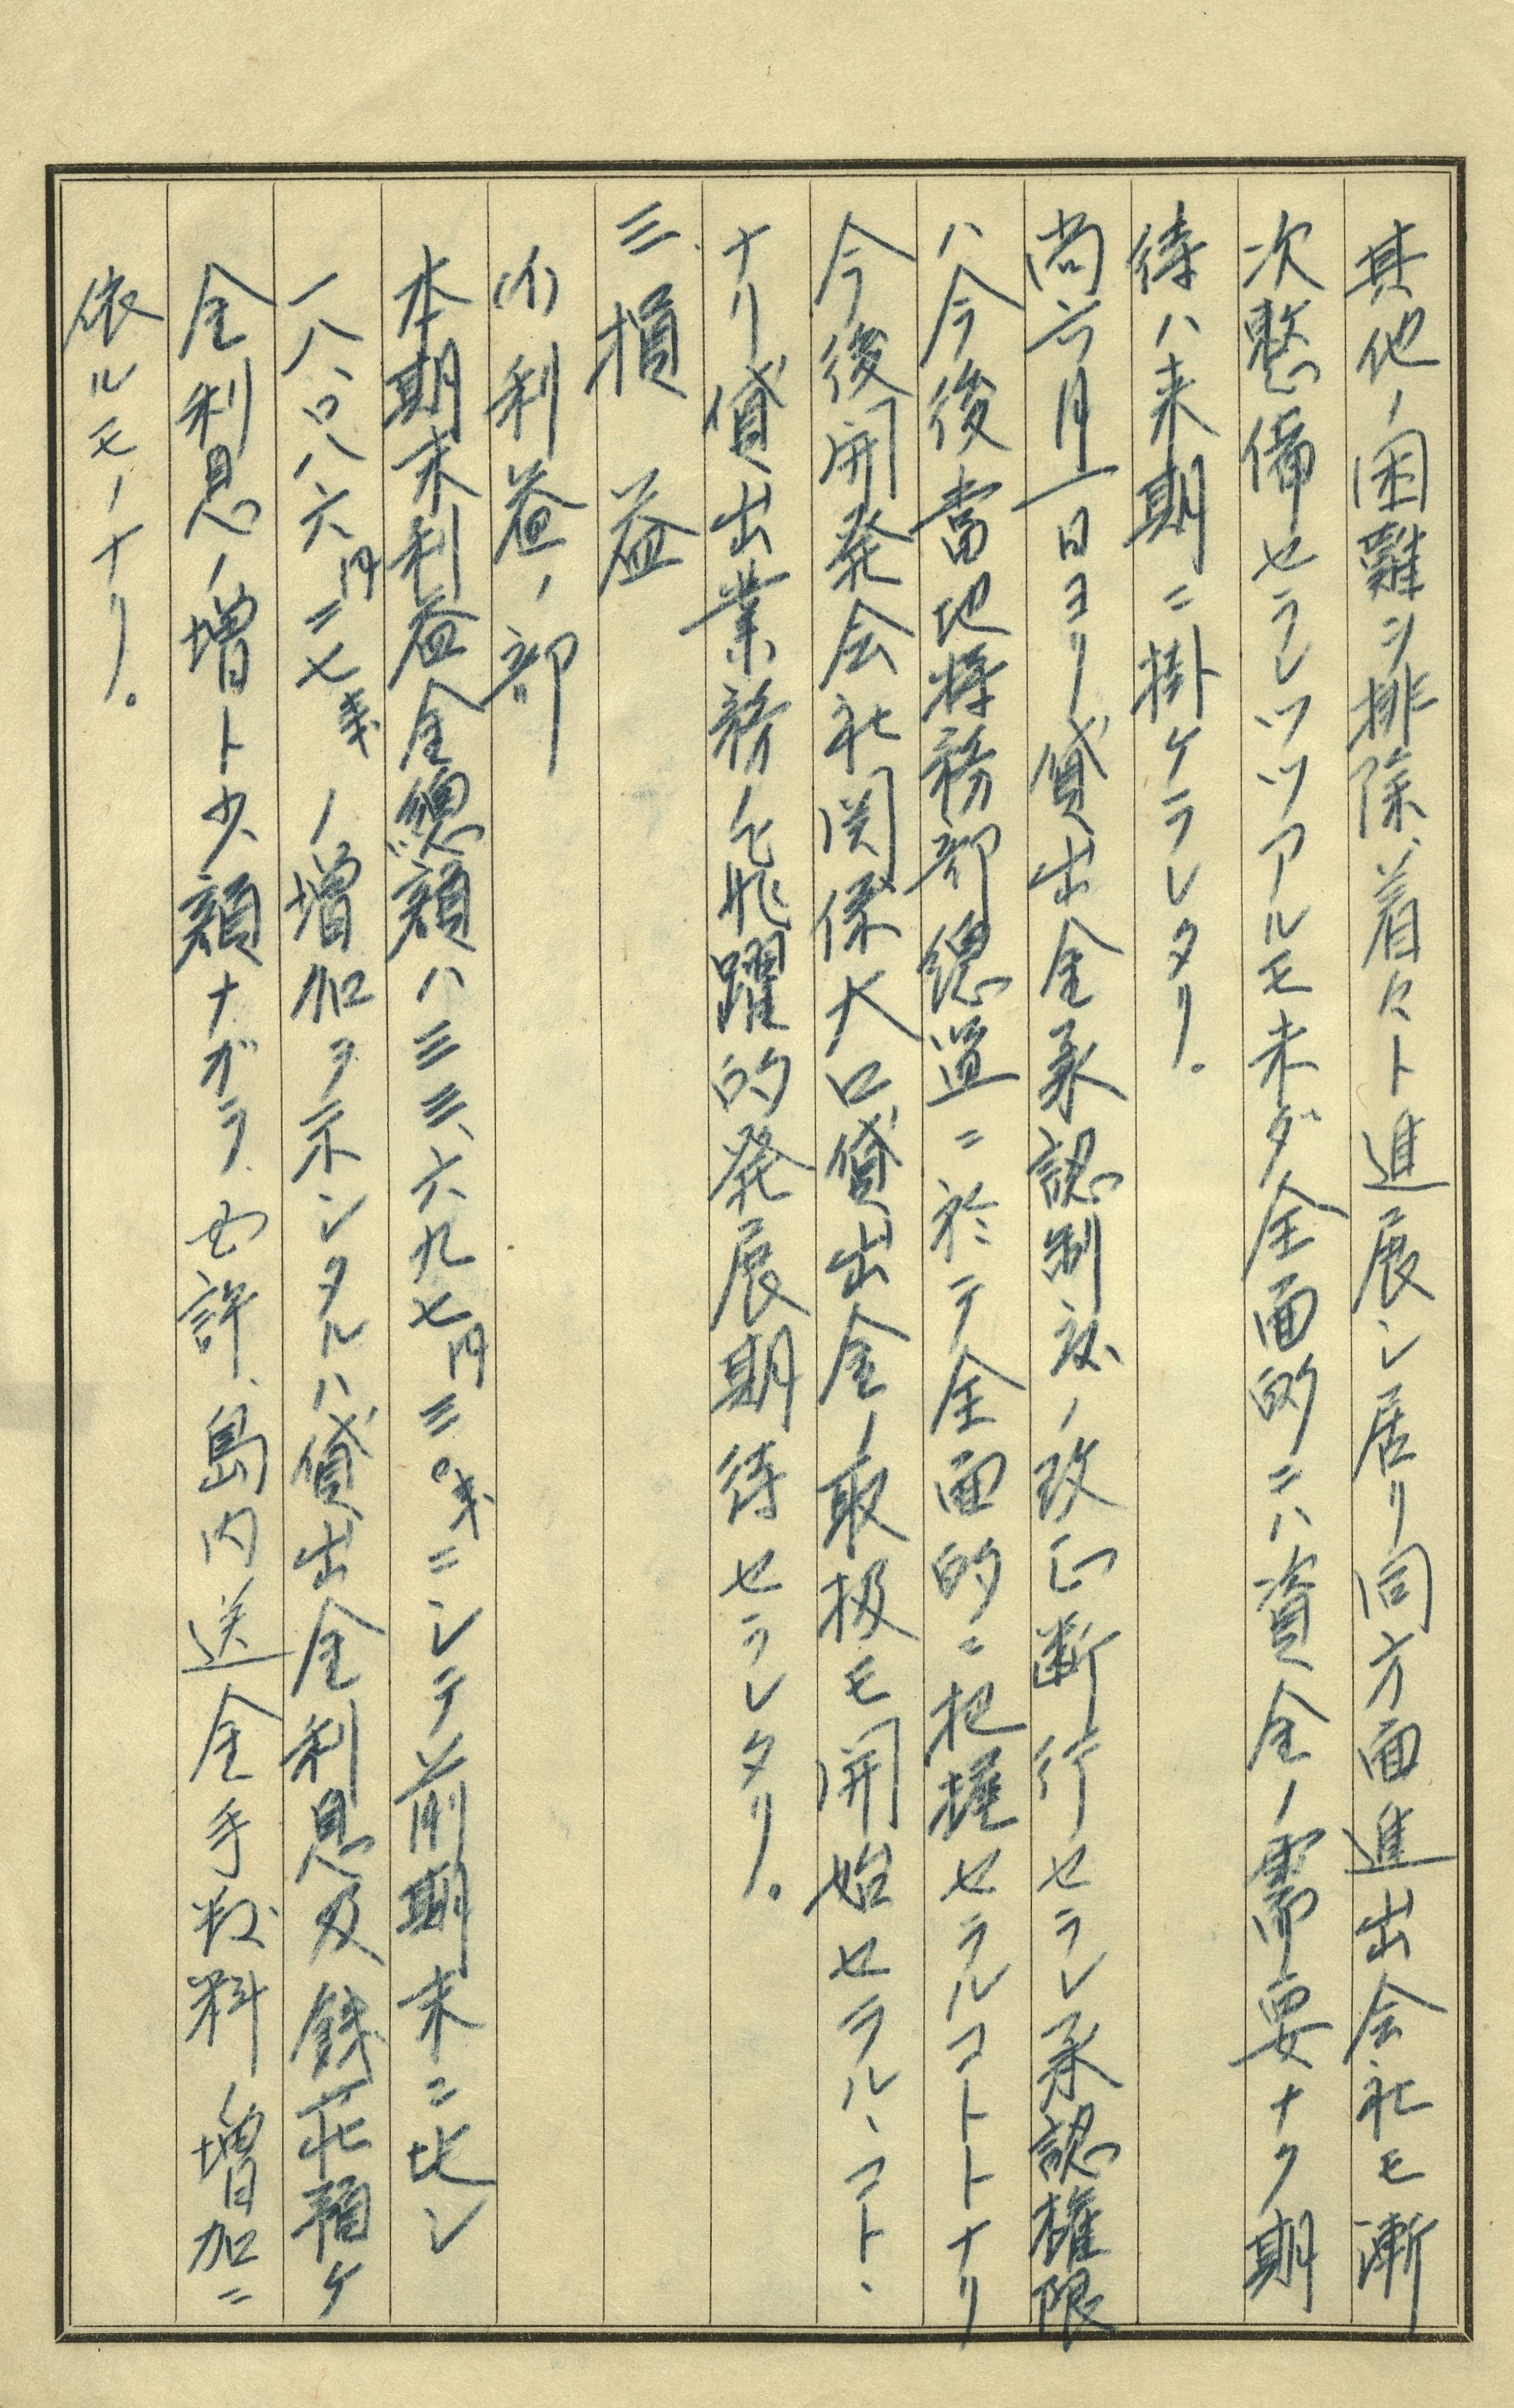 其他ノ困難ヲ排除、着々ト進展シ居リ同方面進出会社モ漸
次整備セラレツツアルモ未ダ全面的ニハ資金ノ需要ナク期
待ハ来期ニ掛ケラレタリ。
尚六月一日ヨリ貸出金承認制度ノ改正断行セラレ承認権限
ハ今後當地特務部總導ニ於テ全面的ニ把握セラルコトトナリ
今後開発会社関係大口貸出金ノ取扱モ開始セラルヽコトヽ
ナリ貸出業務ノ飛躍的発展期待セラレタリ。
三、損益
(イ)利益ノ部
本期末利益金總額ハ三三、六九七円三〇銭ニシテ前期末ニ比シ
一八、〇八六円二七銭ノ増加ヲ示シタルハ貸出金利息及銭荘預ケ
金利息ノ増ト少額ナガラモ許、島内送金手数料ノ増加ニ
依ルモノナリ。